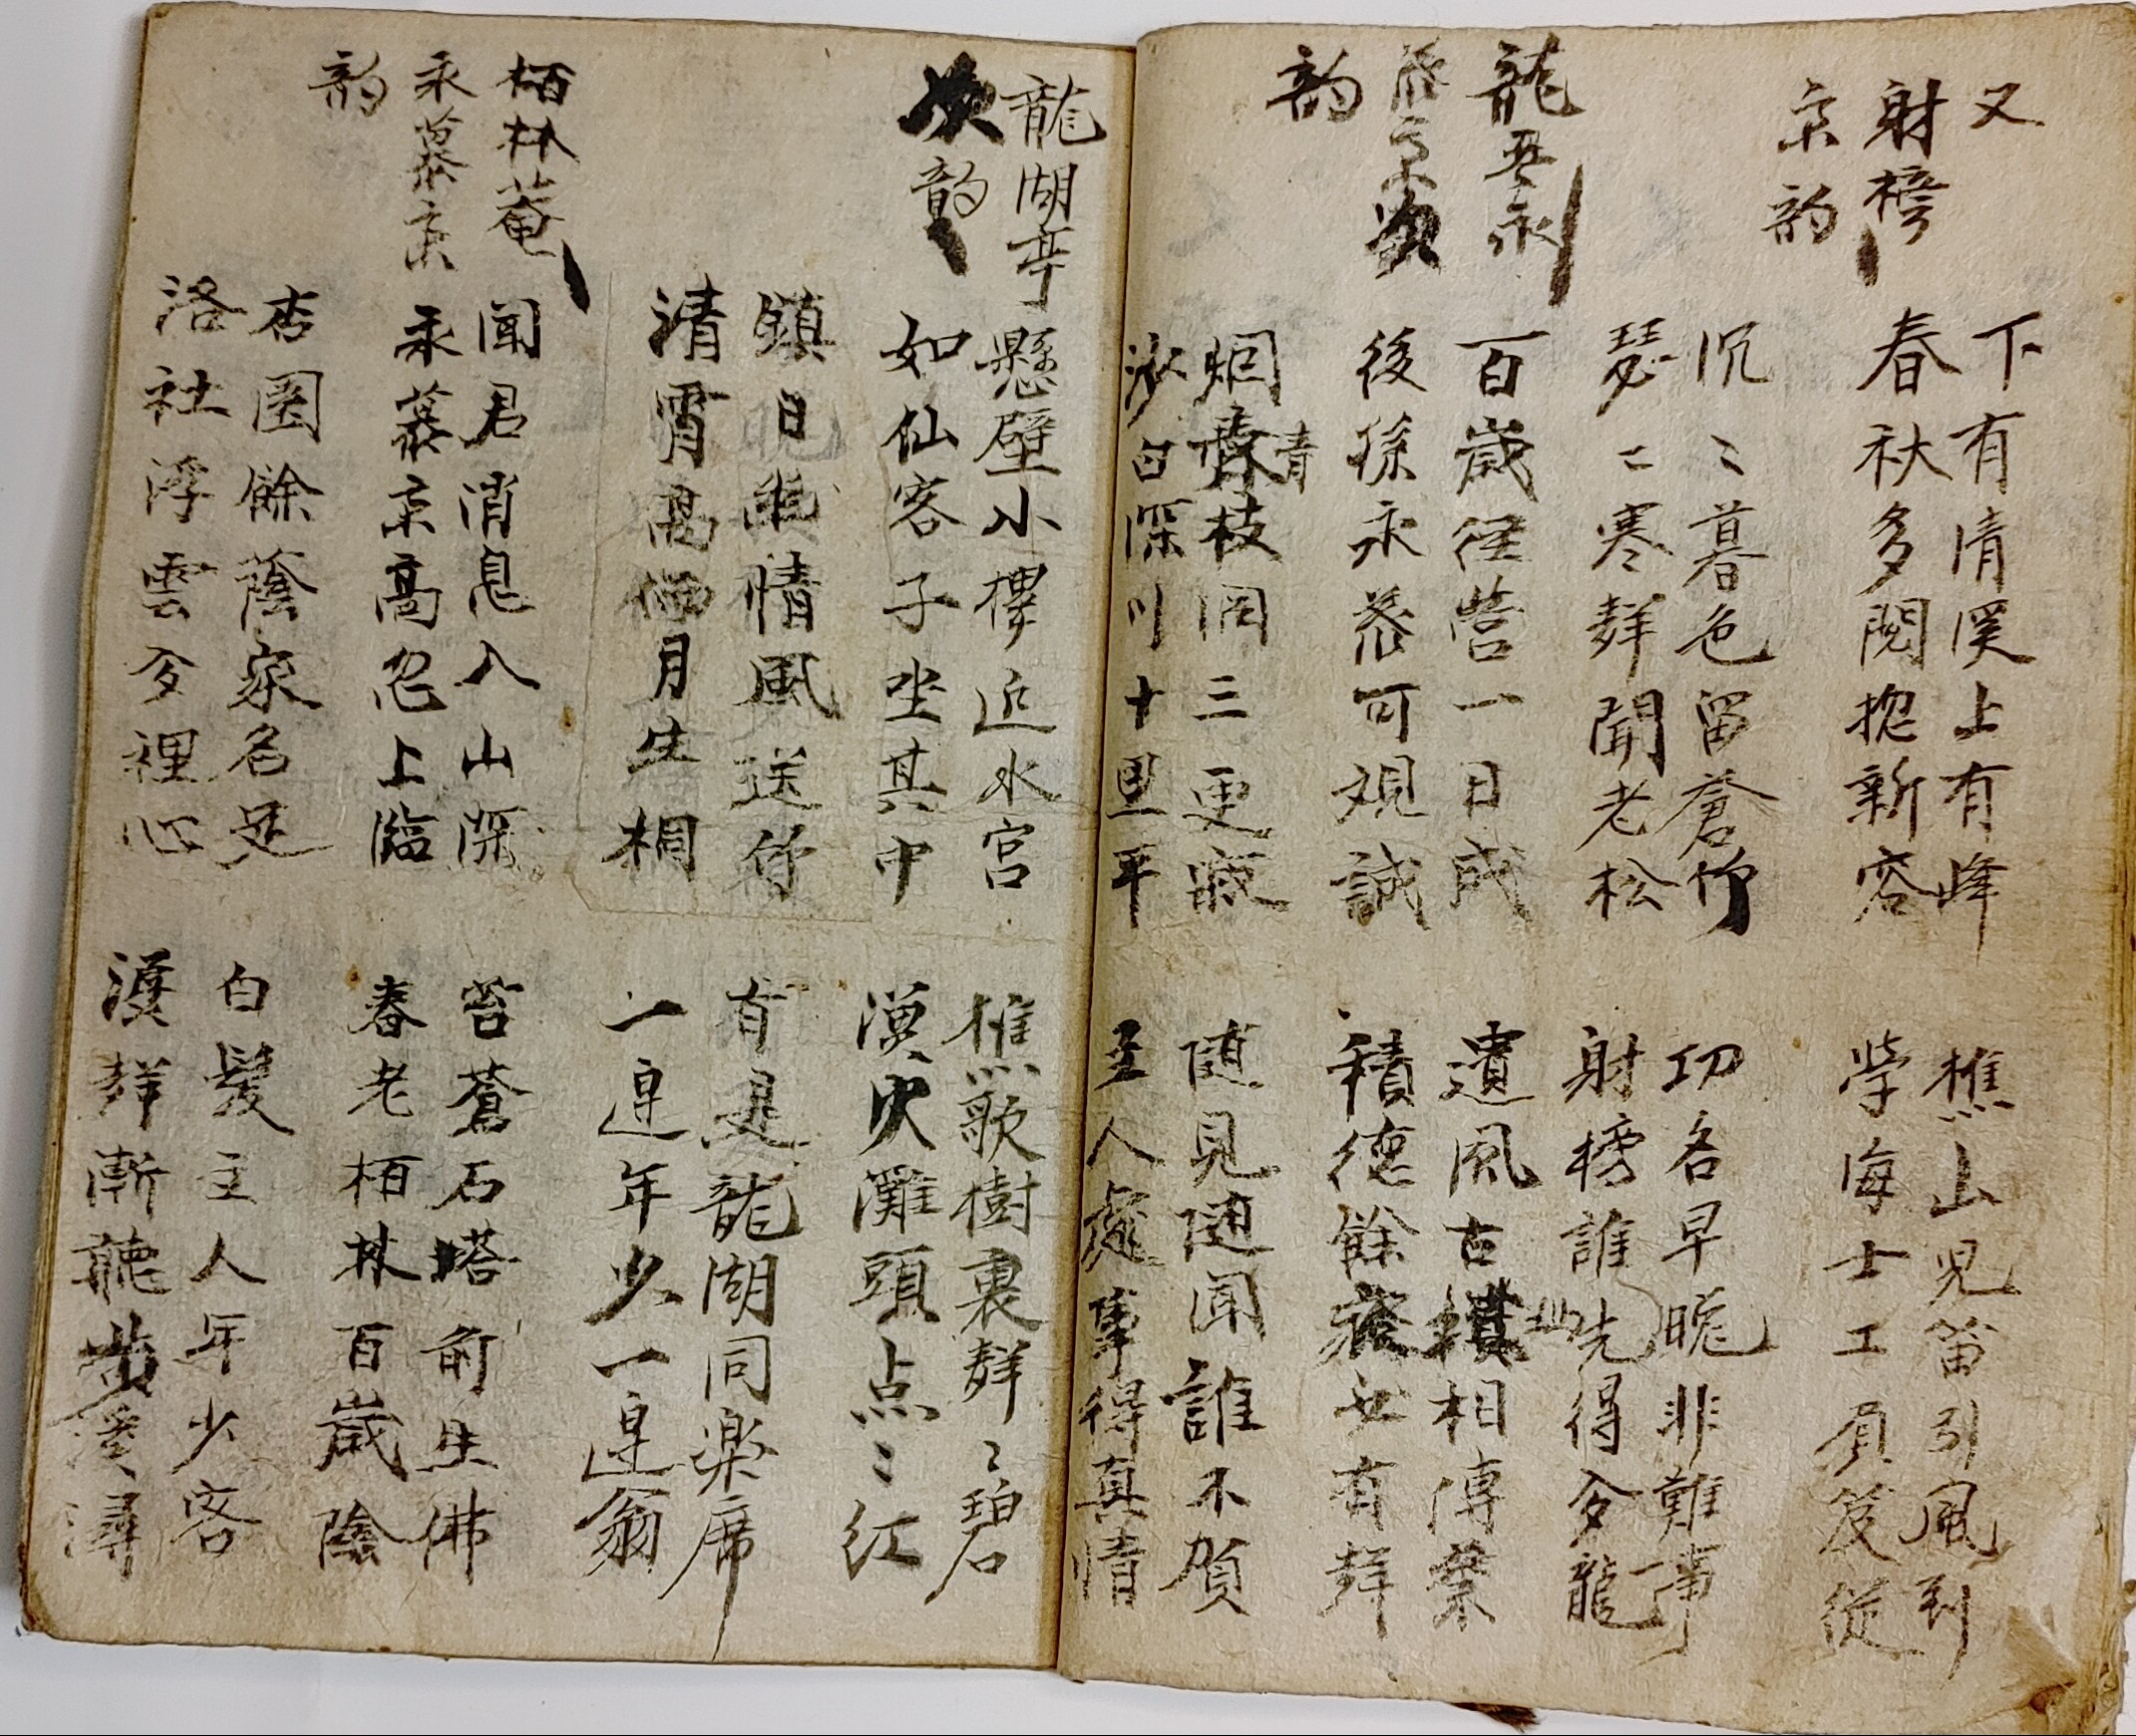 又
射榜
京韵
下有清溪上有峰
樵山児笛引風到
春秋多閱抱新容
学海士工負笈從
沉〻暮色留蒼竹
功名早晚非難事
瑟〻寒聲聞老松
射榜誰先得夕龍
龍吾永
慕京次
韵
百歲經營一日成
遺風古攢相傳業
後孫永慕可観誠
積德餘 世有聲
烟 青枝同三更寂
随見随聞誰不賀
沙白深川十里平
至人處事得真情
龍湖亭
次韵
懸壁小樓近水宮
樵歌樹裏聲〻碧
如仙客子坐其中
漁火灘頭点〻紅
鎮日 情風送竹
有是龍湖同楽席
清宵高 月生桐
一邊年少一邊翁
栢林菴
永慕京
韵
闻君消息入山深
苔蒼石塔前生佛
永慕京高忽上臨
春老栢林百歲陰
杏園餘蔭家名是
白髮主人年少客
洛社浮雲夕裡心
漢聲漸聽 溪潯